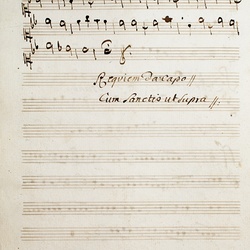 Requiem Da capo //
Cum Sanctis ut supra //.